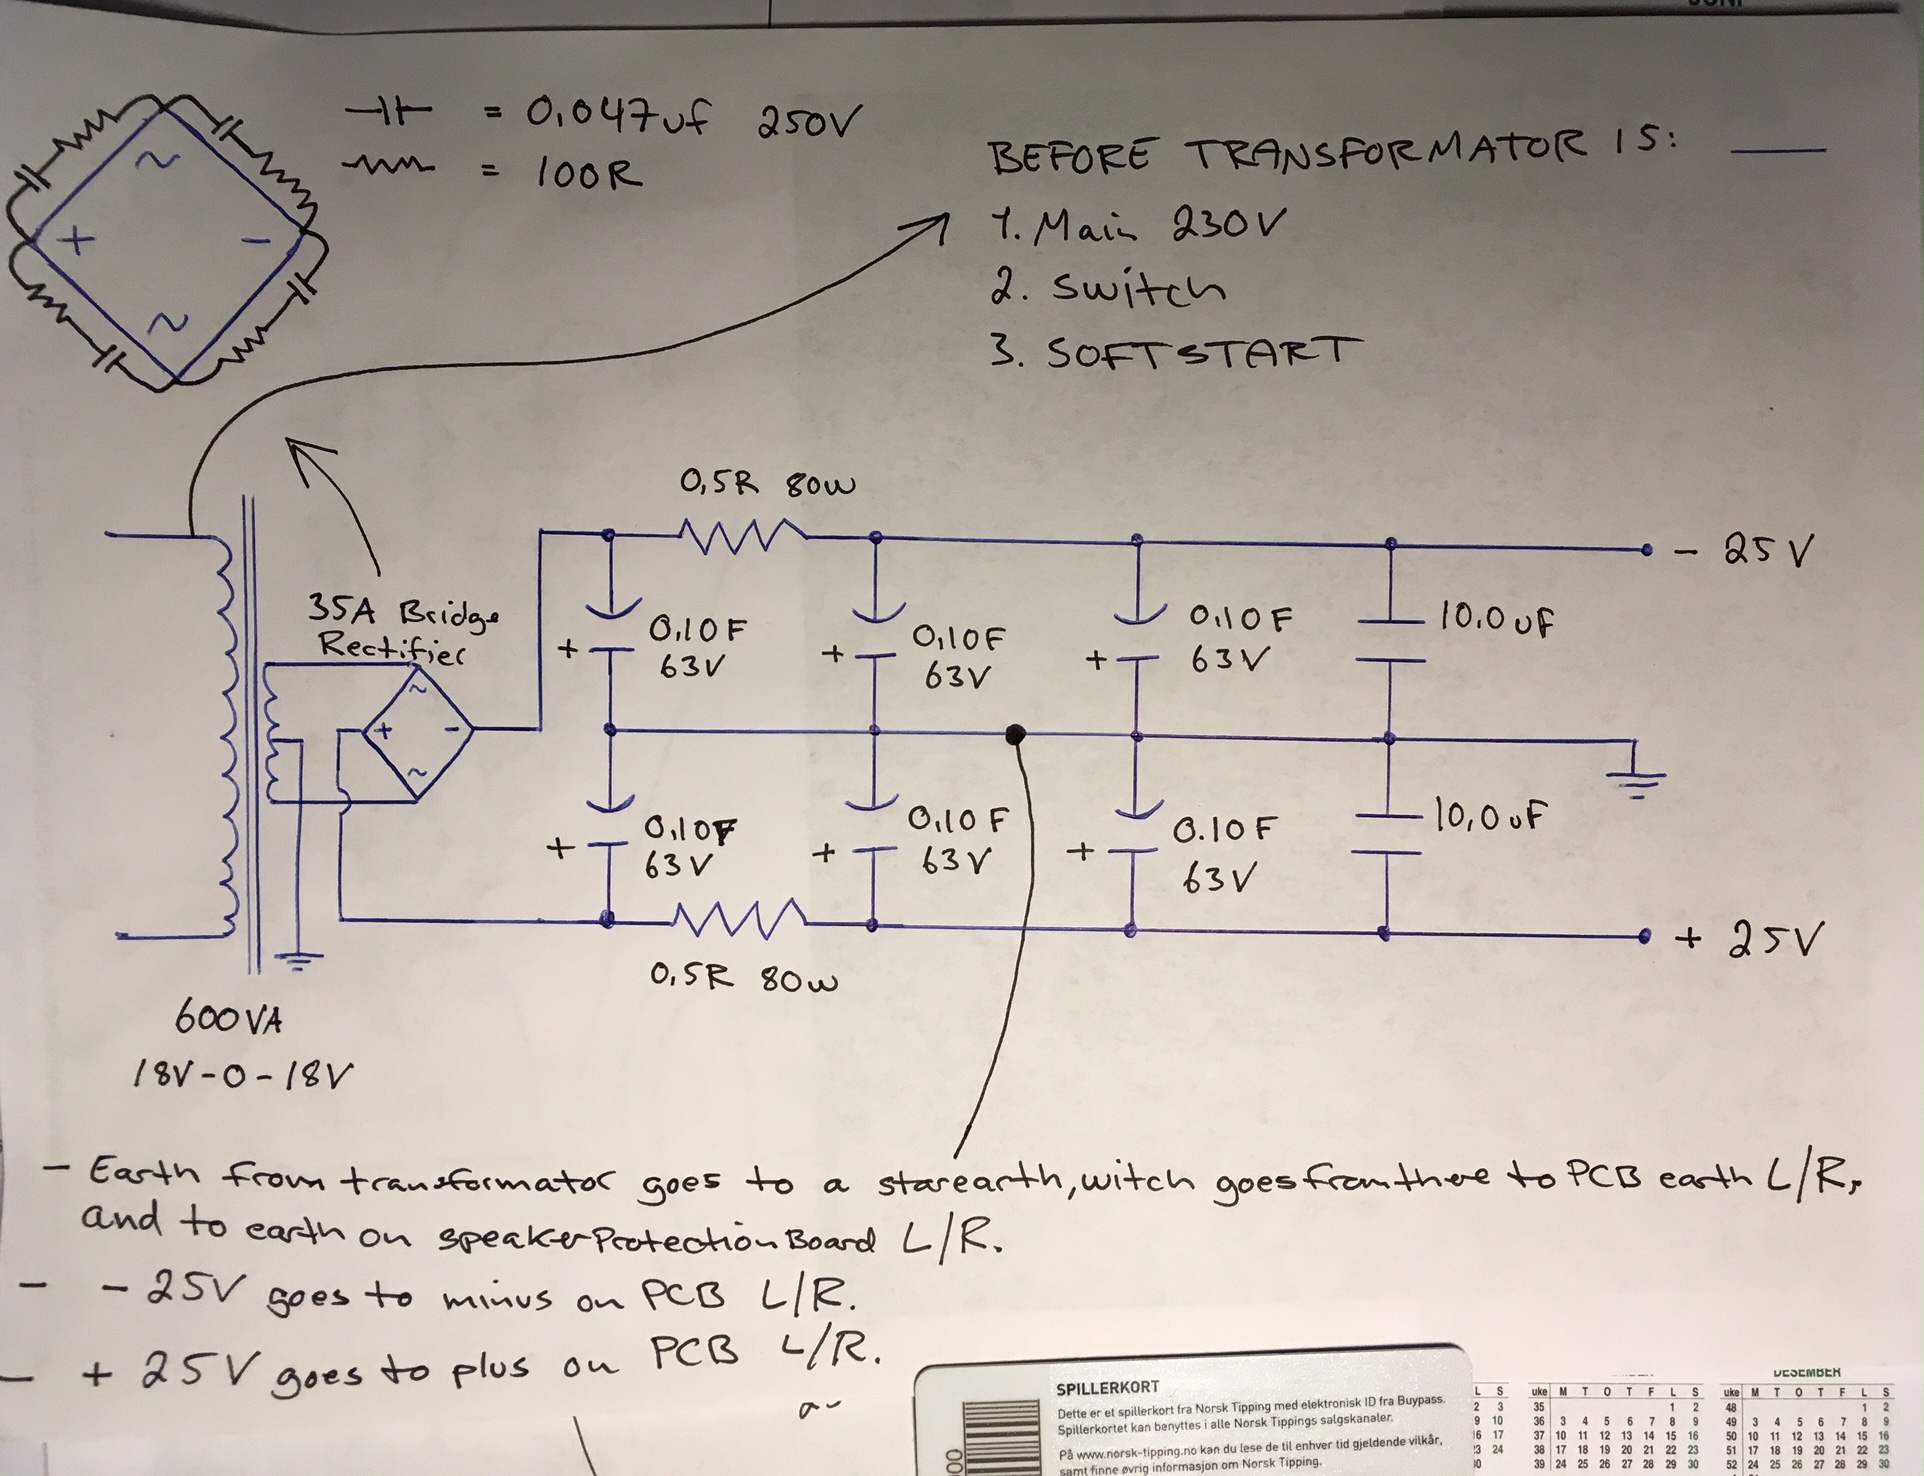 JUNI
= 0,047uf 250V
= 100R
BEFORE TRANSFORMATOR IS:
1. Main 230V
2. Switch
3. SOFTSTART
~
+ -
~
0,5R 80W
- 25V
35A Bridge
Rectifier
+ 0,10F
63V
+ 0,10F
63V
+ 0,10F
63V
10.0uF
~
+ -
~
+ 0,10F
63V
+ 0,10F
63V
+ 0.10F
63V
10,0uF
+ 25V
0,5R 80W
600VA
18V-0-18V
- Earth from transformator goes to a starearth, witch goes from there to PCB earth L/R,
and to earth on speakerProtectionBoard L/R.
- - 25V goes to minus on PCB L/R.
- + 25V goes to plus on PCB L/R.
SPILLERKORT
Dette er et spillerkort fra Norsk Tipping med elektronisk ID fra Buypass.
Spillerkortet kan benyttes i alle Norsk Tippings salgskanaler.
På www.norsk-tipping.no kan du lese de til enhver tid gjeldende vilkår,
samt finne øvrig informasjon om Norsk Tipping.
L S
2 3
9 10
16 17
23 24
30
uke M T O T F L S
35 1 2
36 3 4 5 6 7 8 9
37 10 11 12 13 14 15 16
38 17 18 19 20 21 22 23
39 24 25 26 27 28 29 30
DESEMBER
uke M T O T F L S
48 1 2
49 3 4 5 6 7 8 9
50 10 11 12 13 14 15 16
51 17 18 19 20 21 22 23
52 24 25 26 27 28 29 30